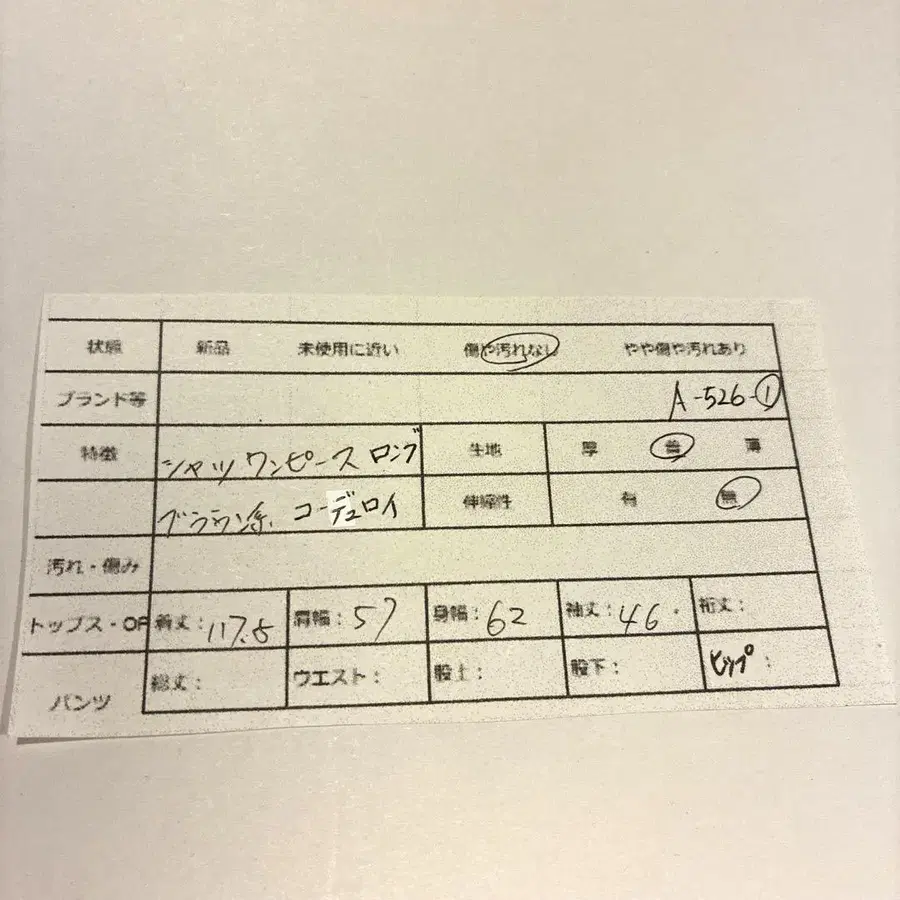 状態 新品 未使用に近い 傷や汚れなし やや傷や汚れあり
ブランド等 A-526-①
特徴 シャツワンピース ロング 生地 厚 普 薄
ブラウン系 コーデュロイ 伸縮性 有 無
汚れ・傷み
トップス・OP 着丈:117.5 肩幅:57 身幅:62 袖丈:46. 裄丈:
パンツ 総丈: ウエスト: 股上: 股下: ヒップ: